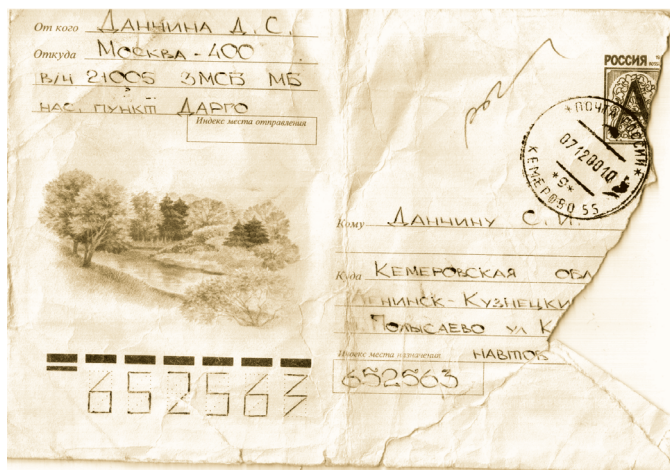 От кого Данчина Д. С.
Откуда Москва - 400
в/ч 21005 3МСБ МБ
нас. пункт Дарго
Индекс места отправления
РОССИЯ
А
ПОЧТА РОССИИ
07120010
*9*
КЕМЕРОВО 55
Кому Данчину С. И.
Куда Кемеровская обл
Ленинск-Кузнецки
Полысаево ул К
Индекс места назначения
652563
652563